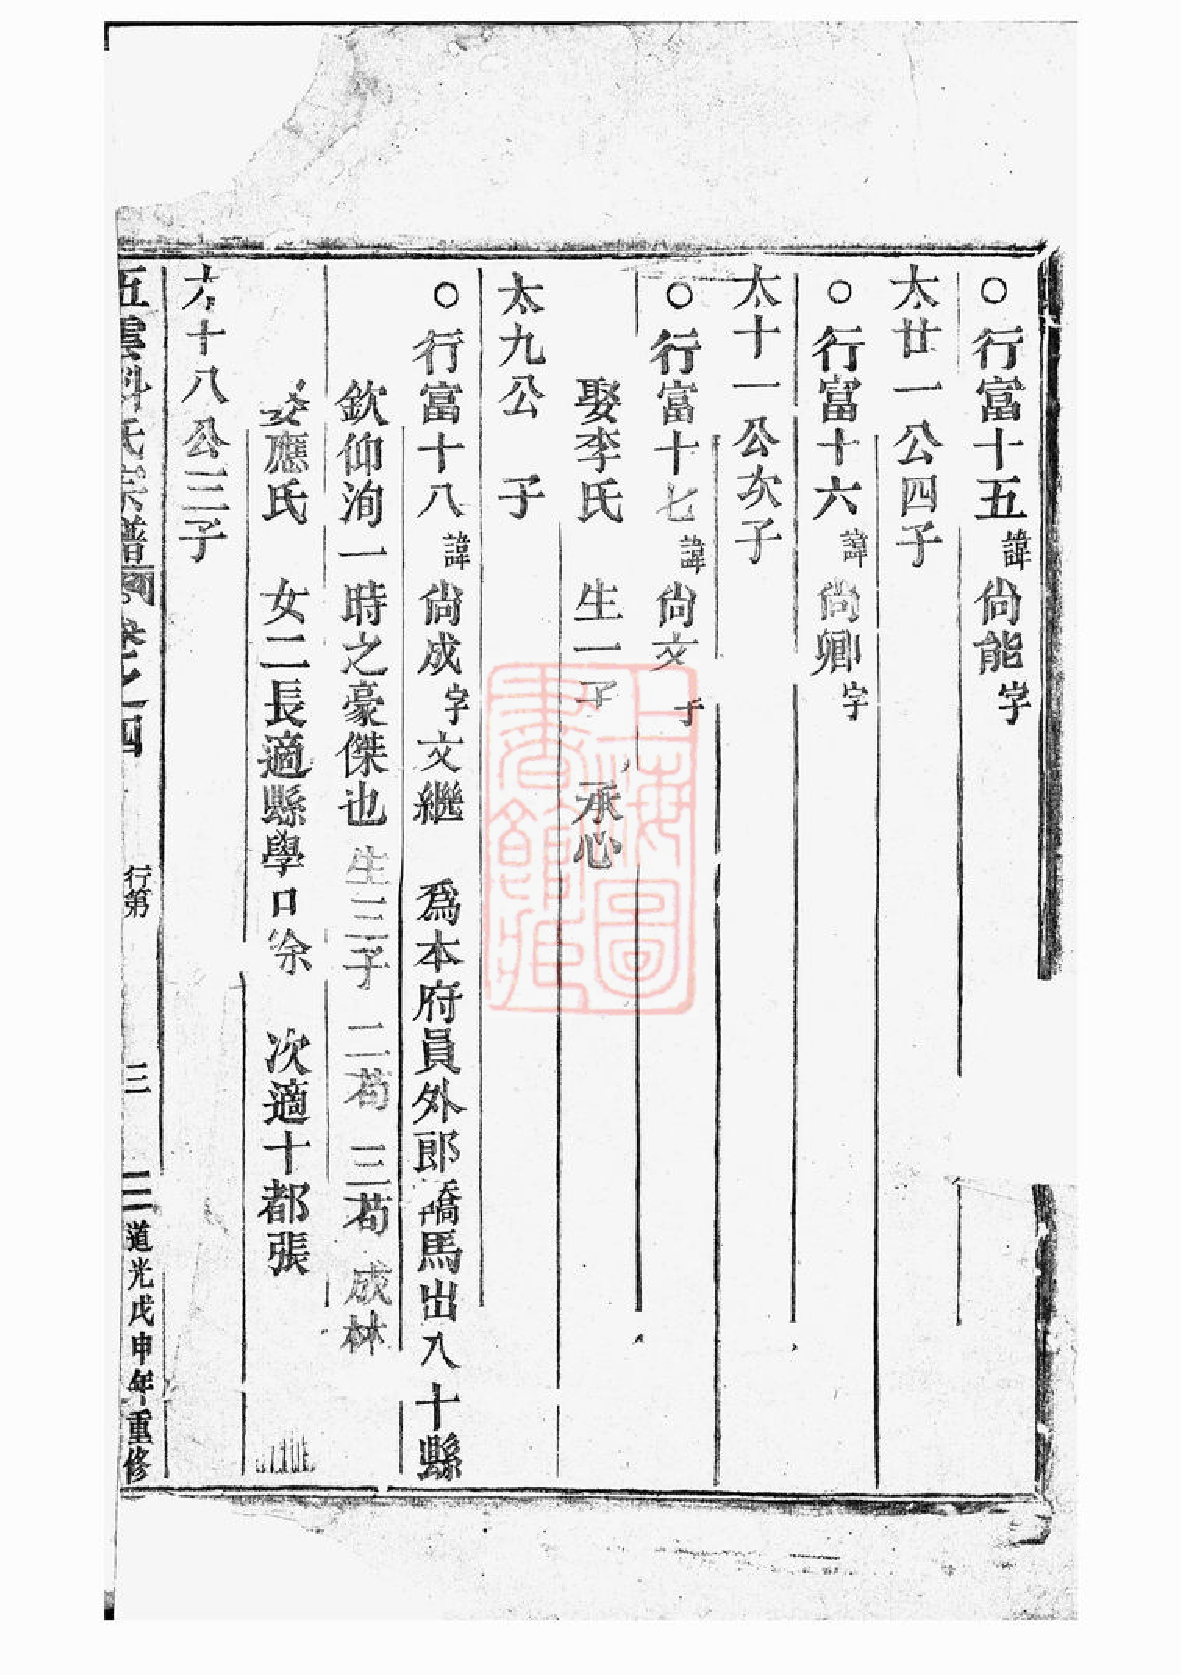 ○行富十五諱尙能字
太廿一公四子
○行富十六諱尙卿字
太十一公次子
○行富十七諱尙文字
娶李氏 生一子 承心
太九公 子
○行富十八諱尙成字文繼 爲本府員外郎轎馬出入十縣
欽仰洵一時之豪傑也 生三子 二苟 三苟 成林
娶應氏 女二長適縣學口徐 次適十都張
太十八公三子
五雲 氏宗譜 卷之四 行第 三 道光戊申年重修
上海圖書館藏